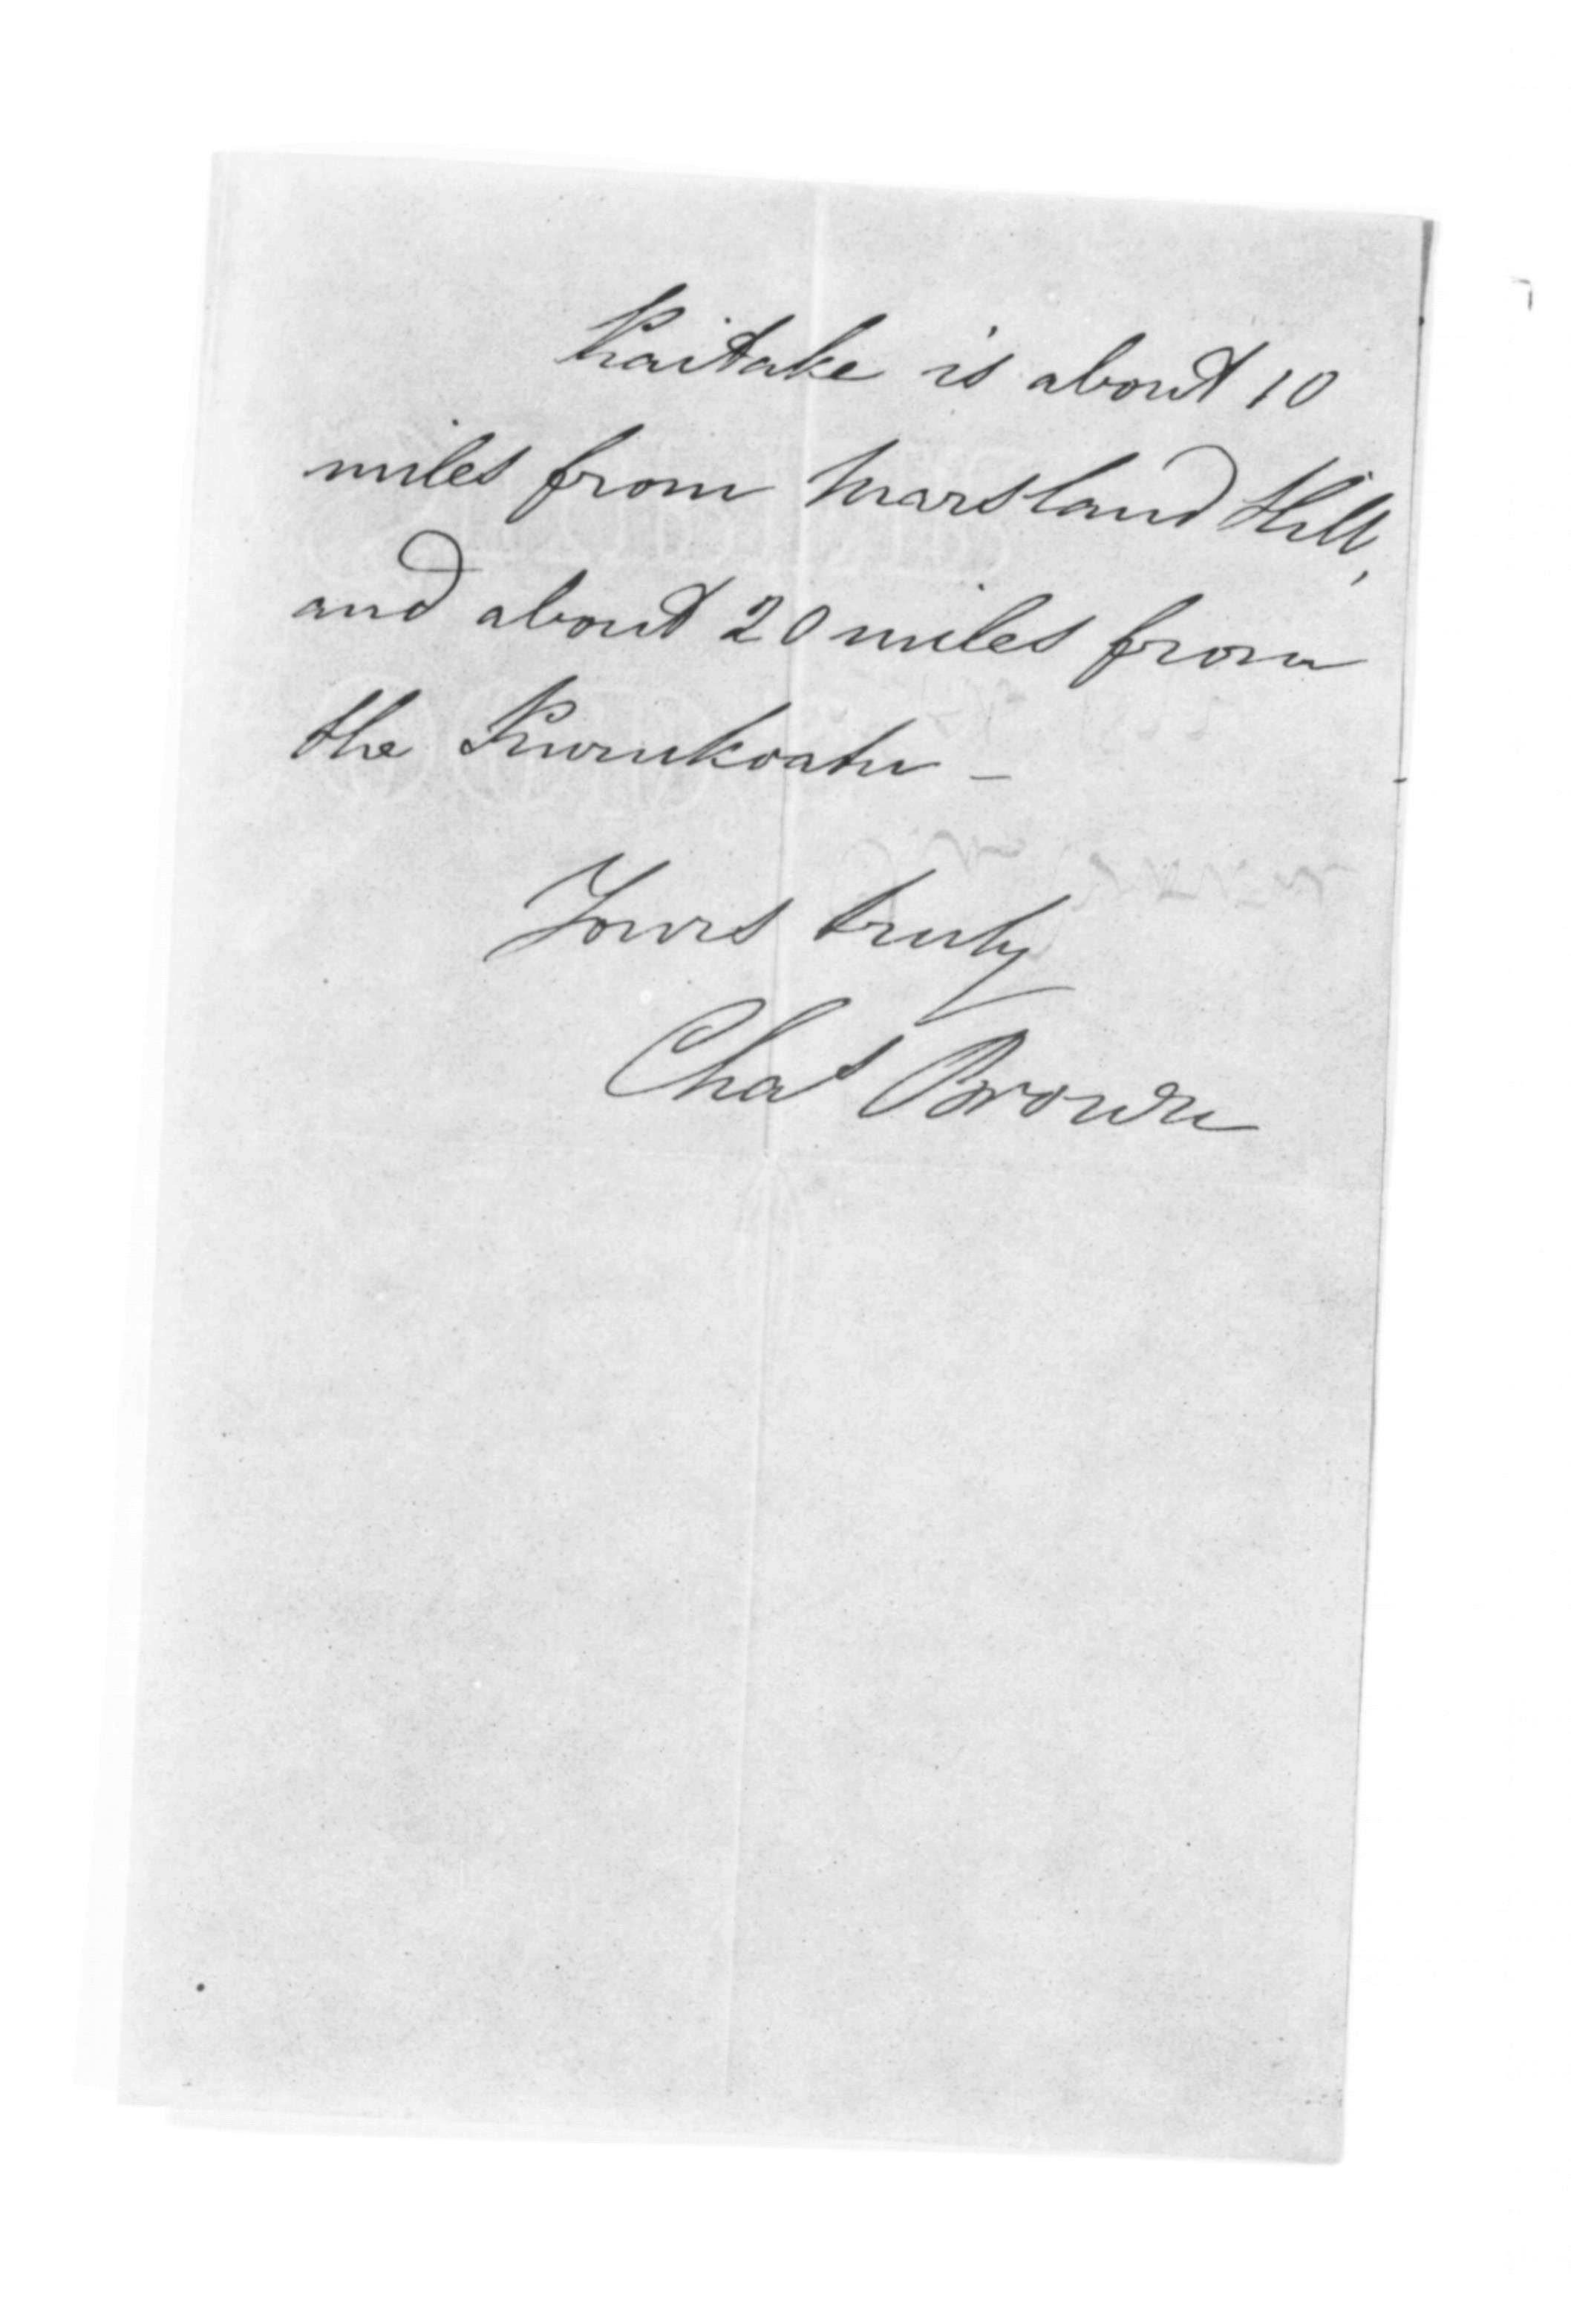 Kaitake is about 10
miles from Marsland Hill,
and about 20 miles from
the –
Yours truly
Chas Brown